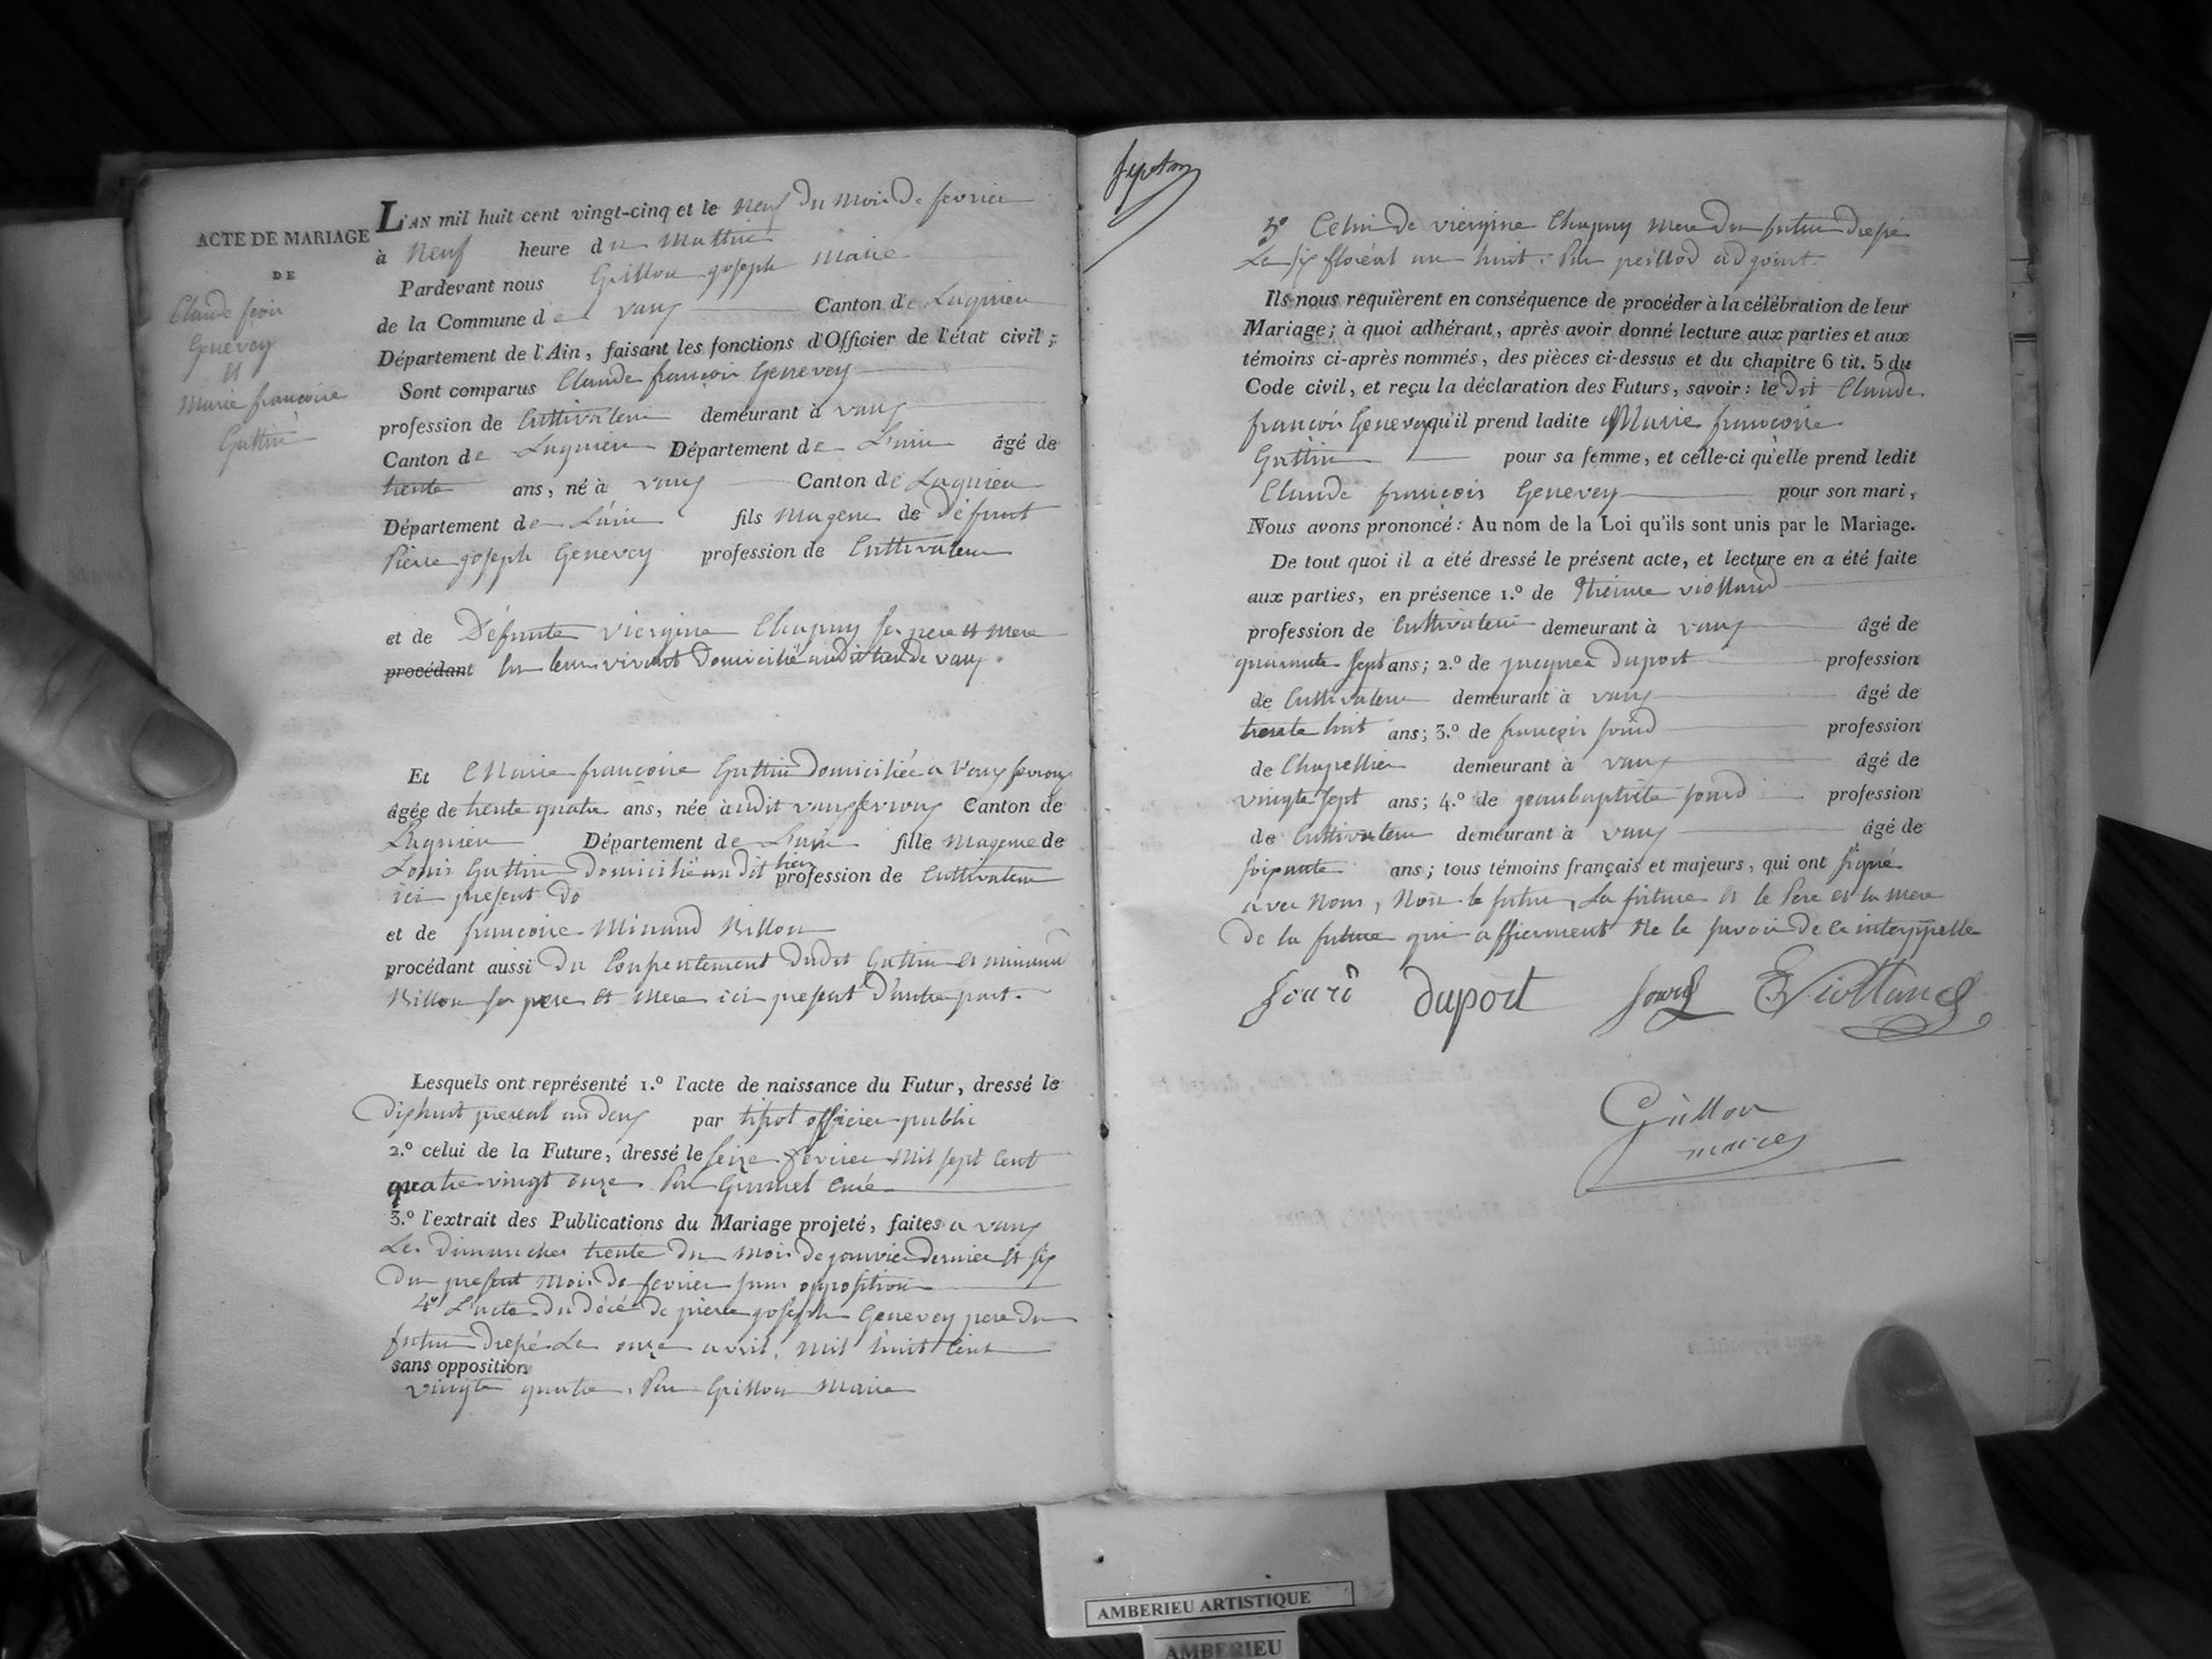 ACTE DE MARIAGE
DE
Claude frois
Genevey
et
Marie francoise
Guttin
L'AN mil huit cent vingt-cinq et le neuf du mois de fevrier
à Neuf heure du Mattin
Pardevant nous Grillon joseph maire
de la Commune de vaux Canton de Lagnieu
Département de l'Ain, faisant les fonctions d'Officier de l'état civil;
Sont comparus Claude françois Genevey
profession de Cultivateur demeurant à vaux
Canton de Lagnieu Département de L'ain âgé de
trente ans, né à vaux Canton de Lagnieu
Département de L'ain fils mageur de Défunt
Pierre joseph Genevey profession de Cultivateur
et de Défunte viergine Chapuy ses pere et mere
procédant sur leurs vivant Domicilié audit lieu de vaux.
Et Marie françoise Guttin domiciliée a Vaux fevroux
âgée de trente quatre ans, née audit vaux fevroux Canton de
Lagnieu Département de L'ain fille mageure de
Louis Guttin Domicilié au dit lieu profession de Cultivateur
ici present
et de francoise Minand Billon
procédant aussi du Consentement dudit Guttin et minand
Billon ses pere et mere ici present d'autre part.
Lesquels ont représenté 1.º l'acte de naissance du Futur, dressé le
Dixhuit prereal an deux par tipot officier public
2.º celui de la Future, dressé le seize fevrier mil sept Cent
quatre vingt onze Par Curé
3.º l'extrait des Publications du Mariage projeté, faites a vaux
Les Dimanches trente du mois de janvier dernier et six
du present mois de fevrier sans opposition
4º L'acte du décé de pierre joseph Genevey pere du
futur dressé Le onze avril, mil huit Cent
sans opposition
vingte quatre, Par Grillon Maire
5º Celui de viergine Chapuy mere du futur dressé
Le six floréal an huit. Par peillod adjoint
Ils nous requièrent en conséquence de procéder à la célébration de leur
Mariage; à quoi adhérant, après avoir donné lecture aux parties et aux
témoins ci-après nommés, des pièces ci-dessus et du chapitre 6 tit. 5 du
Code civil, et reçu la déclaration des Futurs, savoir: le dit Claude
françois Genevey qu'il prend ladite Marie francoise
Guttin pour sa femme, et celle-ci qu'elle prend ledit
Claude françois Genevey pour son mari,
Nous avons prononcé: Au nom de la Loi qu'ils sont unis par le Mariage.
De tout quoi il a été dressé le présent acte, et lecture en a été faite
aux parties, en présence 1.º de Etienne violland
profession de Cultivateur demeurant à vaux âgé de
quarante sept ans; 2.º de jacques duport profession
de Cultivateur demeurant à vaux âgé de
trente huit ans; 3.º de françois jourd profession
de Chapellier demeurant à vaux âgé de
vingte sept ans; 4.º de jeanbaptiste jourd profession
de Cultivateur demeurant à vaux âgé de
soixante ans; tous témoins français et majeurs, qui ont signé
avec Nous, Non le futur, La future et le Pere et la mere
de la future qui affierment Ne le savoir de ce interppelle
duport E Violland
Grillon
maire
AMBERIEU ARTISTIQUE
AMBERIEU